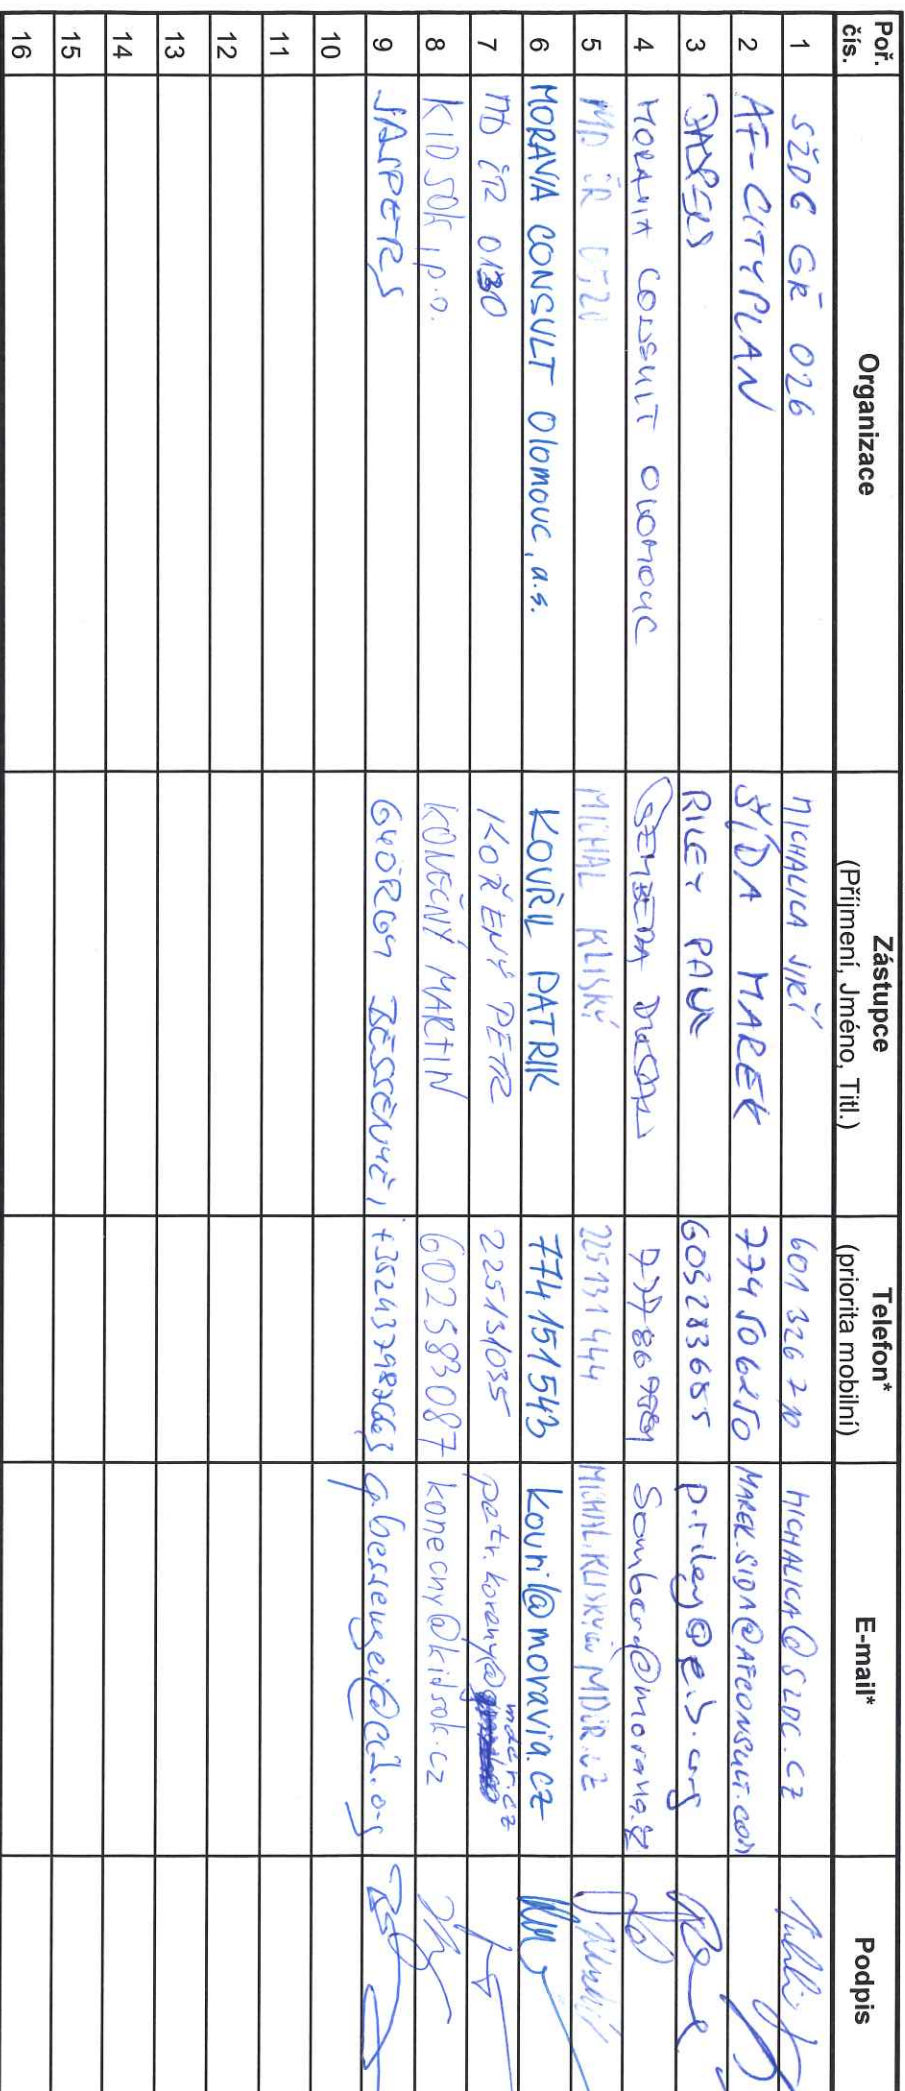 Poř. čís. Organizace Zástupce (Příjmení, Jméno, Titl.) Telefon* (priorita mobilní) E-mail* Podpis
1 SŽDC GŘ 026 MICHALICA JIŘÍ 601 326 710 MICHALICA@SZDC.CZ
2 AF-CITYPLAN ŠÍDA MAREK 774 506 250 MAREK.SIDA@AFCONSULT.COM
3 JASPERS RILEY PAUL 603283685 p.riley@eib.org
4 MORAVIA CONSULT OLOMOUC
5 MD ČR O520 MICHAL KLISKÝ 225131444
6 MORAVIA CONSULT Olomouc, a.s. KOUŘIL PATRIK 774 151 543 kouril@moravia.cz
7 MD ČR 0130 KOŘENÝ PETR 225131035 petr.koreny@mdcr.cz
8 KIDSOK p.o. KONEČNÝ MARTIN 602583087 konecny@kidsok.cz
9 JASPERS GYÖRGY BESSENYEI
10
11
12
13
14
15
16